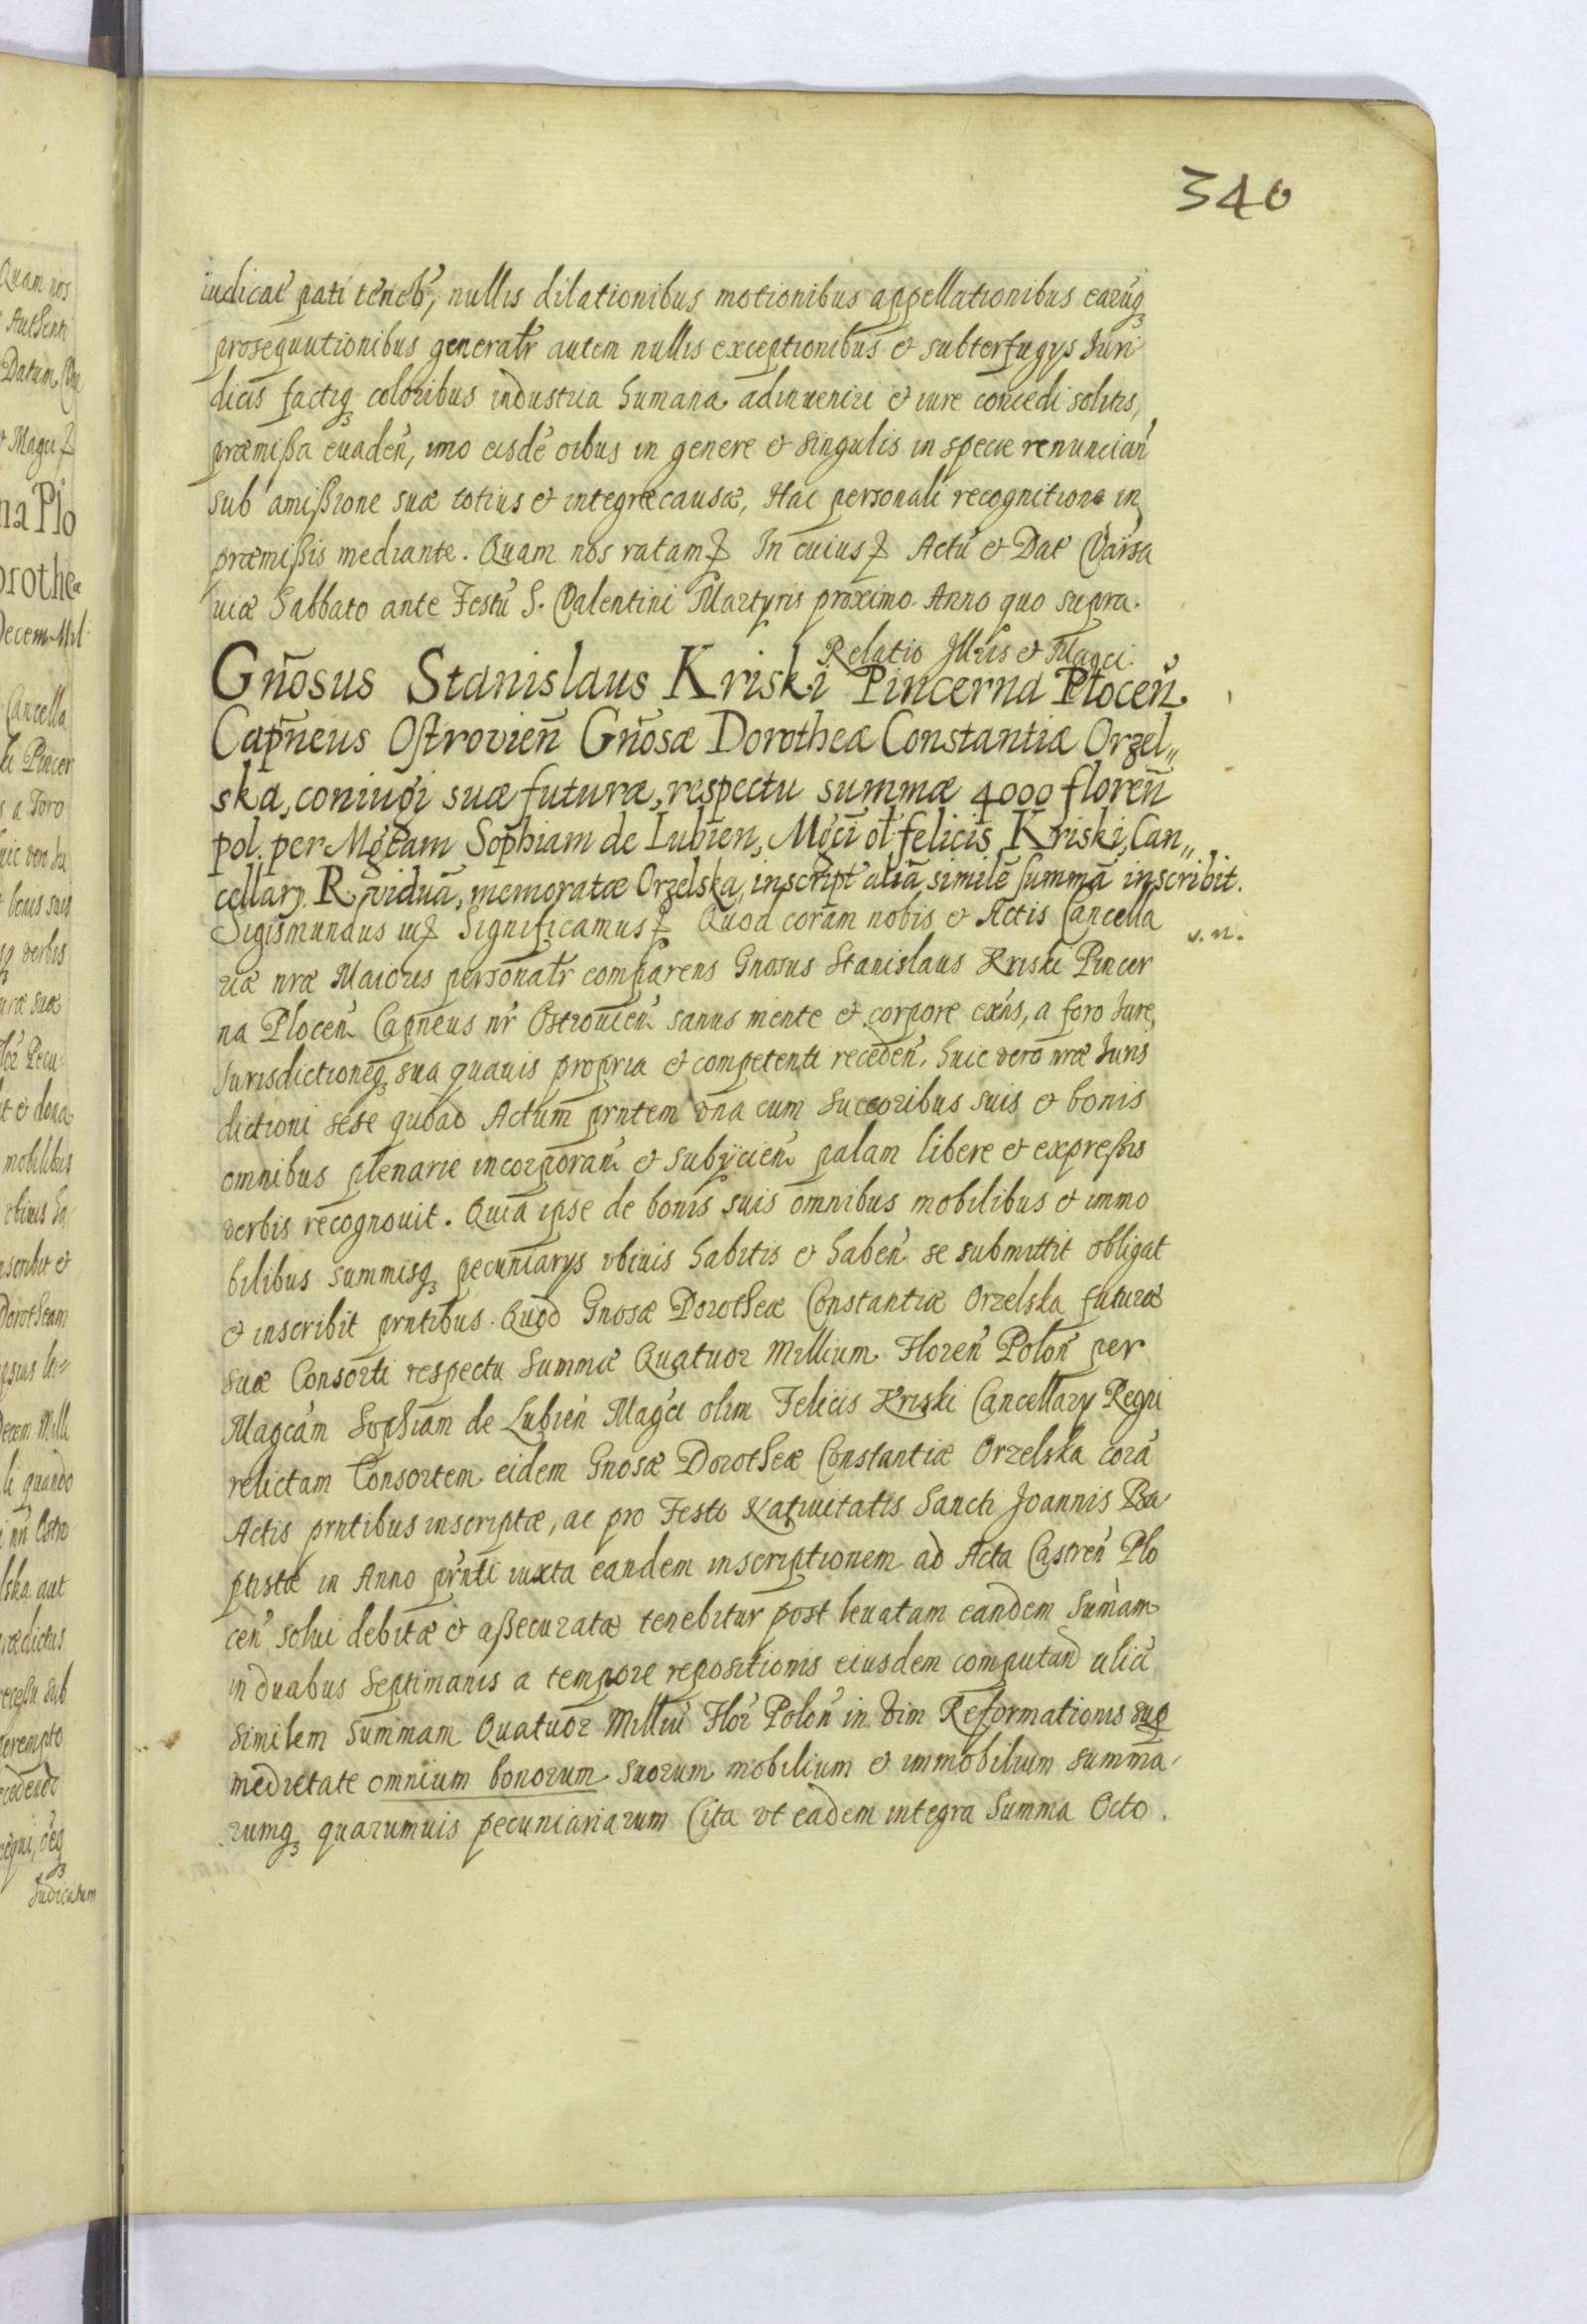 340
iudicat pati teneb, nullis dilationibus motionibus appellationibus earūq
prosequutionibus generalr autem nullis exceptionibus & subterfugys Juri
dicis factiq coloribus industria humana adinueniri & iure concedi solitis,
præmißa euaden, imo eisdē oibus in genere & singulis in specie renuncian
sub amißione suæ totius & integræ causæ, Hac personali recognitione in
præmißis mediante. Quam nos ratam In cuius Actū & Dat Varsa
uiæ Sabbato ante Festū S. Valentini Martyris proximo. Anno quo supra.
Relatio Illris & Magci.
Gnosus Stanislaus Kriski Pincerna Plocen
Capneus Ostrovien Gnosæ Dorotheæ Constantiæ Orzel„
ska, coniugi suæ futuræ, respectu summæ 4000 floren
pol. per Mgcam Sophiam de Lubien, Mgci ol felicis Kriski, Can„
cellary R. viduā, memoratæ Orzelska, inscript aliā similē summā inscribit.
Sigismundus iij Significamus Quod coram nobis & Actis Cancella
v. n.
riæ nræ Maioris personalr comparens Gnosus Stanislaus Kriski Pincer
na Plocen Capneus nr Ostrouien sanus mente & corpore exns, a foro Jure,
Jurisdictioneq sua quauis propria & competenti receden, huic vero nræ Juris
dictioni sese quoad Actum prntem vna cum succoribus suis & bonis
omnibus plenarie incorporan & subijcien palam libere & expreßis
verbis recognouit. Quia ipse de bonis suis omnibus mobilibus & immo
bilibus summisq pecuniarys vbiuis habitis & haben se submittit obligat
& inscribit prntibus. Quod Gnosæ Dorotheæ Constantiæ Orzelska futuræ
suæ Consorti respectu Summæ Quatuor Millium Floren Polon per
Magcam Sophiam de Lubien Magci olim Felicis Kriski Cancellary Regni
relictam Consortem eidem Gnosæ Dorotheæ Constantiæ Orzelska corā
Actis prntibus inscriptæ, ac pro Festo Natiuitatis Sancti Joannis Ba
ptistæ in Anno prnti iuxta eandem inscriptionem ad Acta Castren Plo
cen solui debitæ & aßecuratæ tenebitur post leuatam eandem Sumam
in duabus Septimanis a tempore repositionis eiusdem computand aliā
similem Summam Quatuor Milliū Flor Polon in vim Reformationis sup
medietate omnium bonorum suorum mobilium & immobilium summa
rumq quarumuis pecuniariarum (ita vt eadem integra Summa Octo